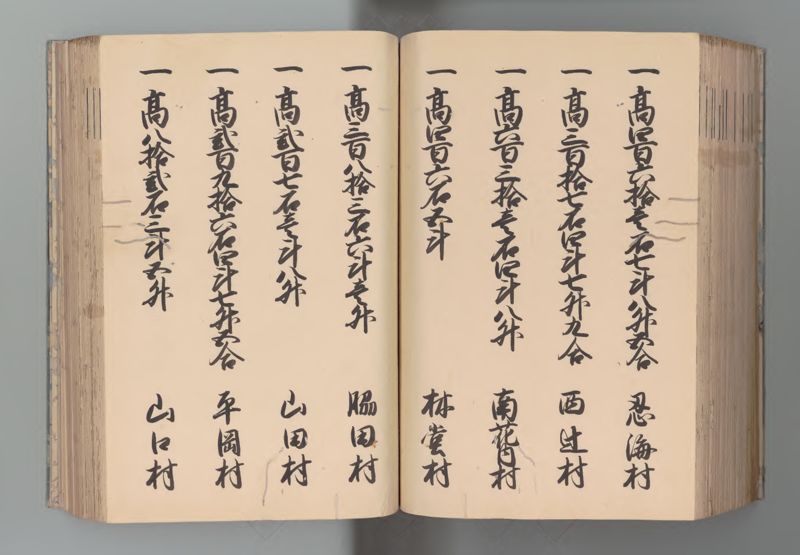 一 高四百六拾壱石七斗八升五合 忍海村
一 高三百拾七石四斗七升九合 西辻村
一 高六百三拾壱石四斗八升 南花内村
一 高四百六石五斗 林堂村
一 高三百八拾三石六斗壱升 脇田村
一 高弐百七石壱斗八升 山田村
一 高弐百九拾六石四斗七升五合 平岡村
一 高八拾弐石三斗五升 山口村